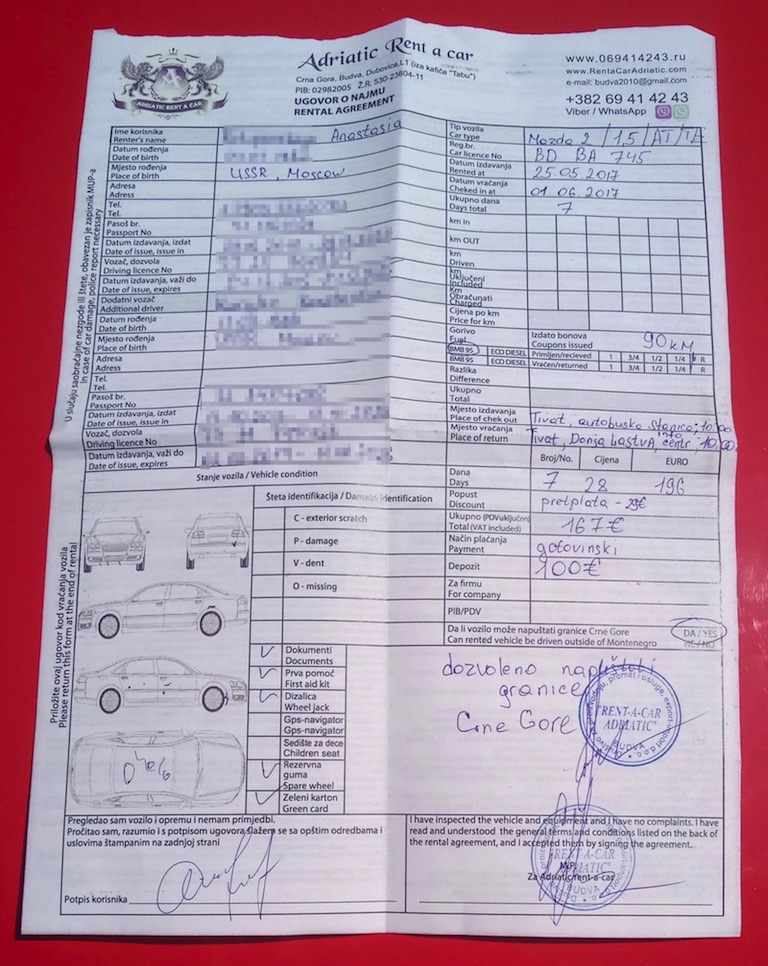 Adriatic Rent a car
ADRIATIC RENT A CAR
Crna Gora, Budva, Dubovica,L1 (iza kafića "Tabu")
PIB: 02982005 Ž.R: 530-23604-11
UGOVOR O NAJMU
RENTAL AGREEMENT
www.069414243.ru
www.RentaCarAdriatic.com
e-mail: budva2010@gmail.com
+382 69 41 42 43
Viber / WhatsApp
U slučaju saobraćajne nezgode ili štete, obavezan je zapisnik MUP-a
In case of car damage, police report necessary
Ime korisnika
Renter's name Anastasia
Datum rođenja
Date of birth
Mjesto rođenja
Place of birth USSR, Moscow
Adresa
Adress
Tel.
Tel.
Pasoš br.
Passport No
Datum izdavanja, izdat
Date of issue, issue in
Vozač, dozvola
Driving licence No
Datum izdavanja, važi do
Date of issue, expires
Dodatni vozač
Additional driver
Datum rođenja
Date of birth
Mjesto rođenja
Place of birth
Adresa
Adress
Tel.
Tel.
Pasoš br.
Passport No
Datum izdavanja, izdat
Date of issue, issue in
Vozač, dozvola
Driving licence No
Datum izdavanja, važi do
Date of issue, expires
Tip vozila
Car type Mazda 2 / 1,5 / AT /
Reg.br.
Car licence No BD BA 745
Datum izdavanja
Rented at 25.05.2017
Datum vraćanja
Cheked in at 01.06.2017
Ukupno dana
Days total 7
km in
km OUT
km
Driven
km
Uključeni
Included
Km
Obračunati
Charged
Cijena po km
Price for km
Gorivo
Fuel
Izdato bonova
Coupons issued 90 km
BMB 95 ECO DIESEL Primljen/recieved 1 3/4 1/2 1/4 R
BMB 95 ECO DIESEL Vraćen/returned 1 3/4 1/2 1/4 R
Razlika
Difference
Ukupno
Total
Mjesto izdavanja
Place of chek out Tivat, autobuska stanica; 10:00
Mjesto vraćanja
Place of return Tivat, Donja Lastva, info centr; 10:00
Broj/No. Cijena EURO
Dana
Days 7 28 196
Popust
Discount pretplata - 29€
Ukupno (PDV uključen)
Total (VAT included) 167 €
Način plaćanja
Payment gotovinski
Depozit 100 €
Za firmu
For company
PIB/PDV
Da li vozilo može napuštati granice Crne Gore DA / YES
Can rented vehicle be driven outside of Montenegro NE / NO
Stanje vozila / Vehicle condition
Šteta identifikacija / Damage identification
C - exterior scratch
P - damage
V - dent
O - missing
Priložite ovaj ugovor kod vraćanja vozila
Please return this form at the end of rental
Dokumenti
Documents
Prva pomoć
First aid kit
Dizalica
Wheel jack
Gps-navigator
Gps-navigator
Sedište za dece
Children seat
Rezervna
guma
Spare wheel
Zeleni karton
Green card
dozvoleno napustiti
granice
Crne Gore
"RENT-A-CAR
ADRIATIC"
BUDVA
Pregledao sam vozilo i opremu i nemam primjedbi.
Pročitao sam, razumio i s potpisom ugovora slažem se sa opštim odredbama i
uslovima štampanim na zadnjoj strani
Potpis korisnika
I have inspected the vehicle and equipment and I have no complaints. I have
read and understood the general terms and conditions listed on the back of
the rental agreement, and I accepted them by signing the agreement.
M.P.
Za Adriatic rent-a-car
"RENT-A-CAR
ADRIATIC"
BUDVA